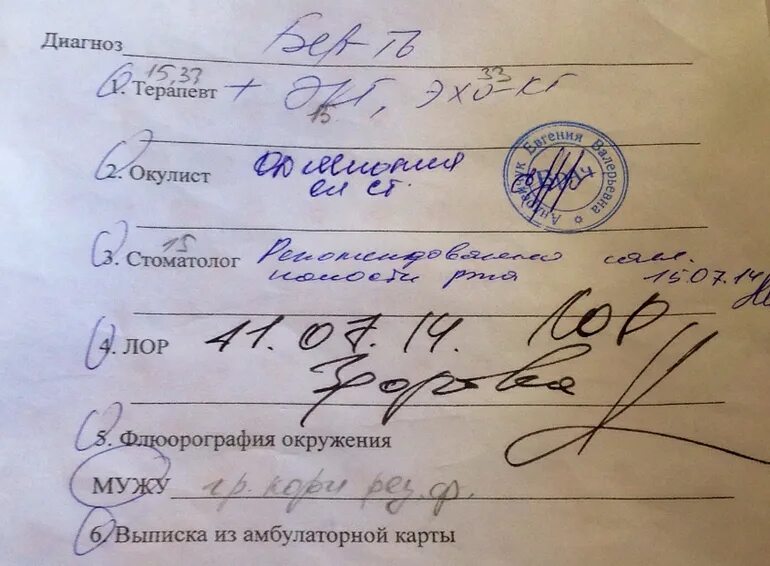 Диагноз Бер-ть
15,33
1. Терапевт + ЭКГ, ЭХО-КГ
33
15
2. Окулист
ел ст.
Андрейчук Евгения Валерьевна
Врач
15
3. Стоматолог Рекомендована сан.
полости рта 15.07.14
4. ЛОР 11.07.14. ЛОР
Здорова
5. Флюорография окружения
МУЖУ гр. кори рез. ф.
6. Выписка из амбулаторной карты